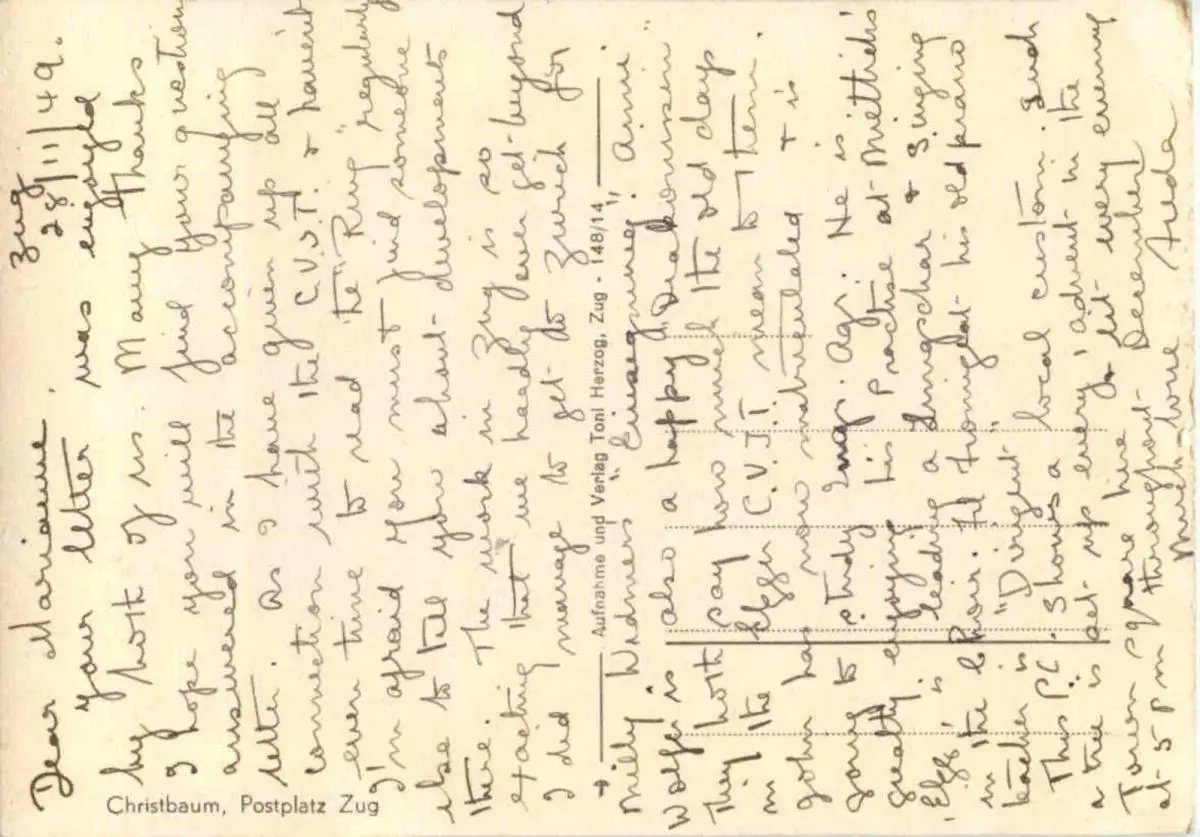 Zug
28/11/49.
Dear Marianne
Your letter was enjoyed
by both of us. Many thanks
I hope you will find your question
answered in the accompanying
letter. As I have given up all
connection with the C.V.J.T. & haven't
even time to read the "Ring" regularly
I'm afraid you must find someone
else to tell you about developments
there. The work in Zug is so
exacting that we hardly ever get beyond
I did manage to get to Zurich for
Aufnahme und Verlag Toni Herzog, Zug - 148/14
Milly Widmer's "Einsegnung". Anni
Wolfer is also a happy "Diakonissin"
They both say how much the old days
in the Egger C.V.J.T. mean to them.
John has now matriculated & is
going to study Ing. Agr. He is
greatly enjoying his Practise at Miettlis
'Eggi' is leading a Singschar & singing
in the Choir. Til tromgat his old piano
teacher is "Dirigent".
This P.C. shows a local custom. Such
a tree is set up every advent in the
Town square here & lit every evening
at 5 pm throughout December
Much love Freda
Christbaum, Postplatz Zug